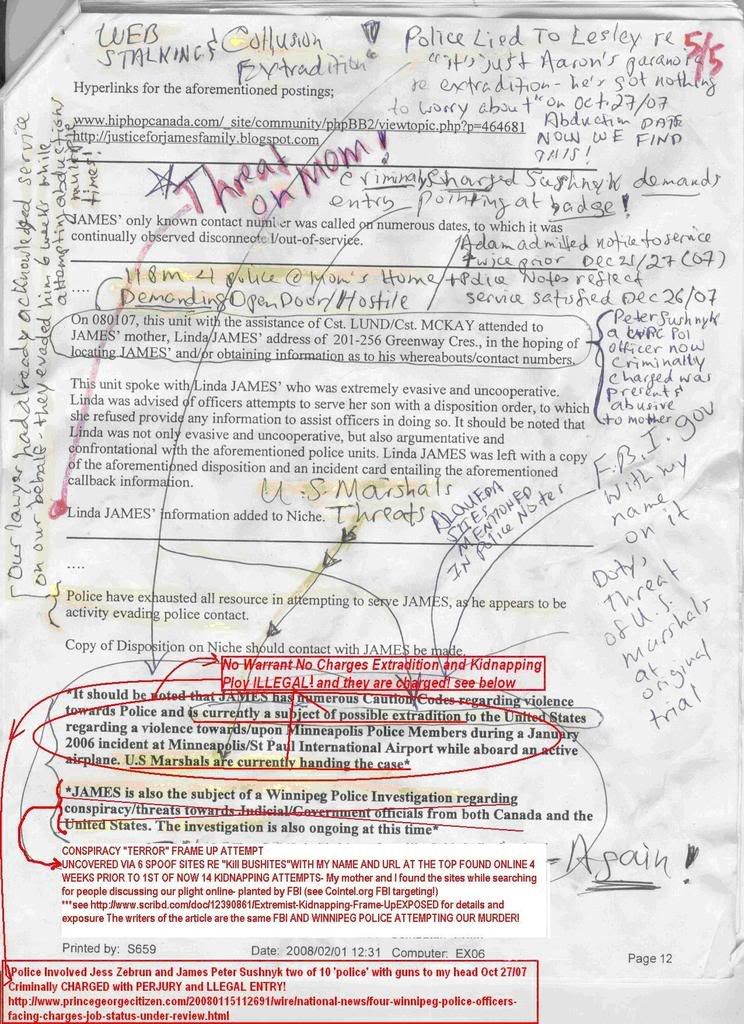 WEB STALKING & Collusion Extradition"
Police Lied To Lesley re 5/5
"it's just Aaron's paranoia
re extradition - he's got nothing
to worry about" on Oct. 27/07
Abduction DATE
NOW WE FIND
THIS!
Hyperlinks for the aforementioned postings;
www.hiphopcanada.com/_site/community/phpBB2/viewtopic.php?p=464681
http://justiceforjamesfamily.blogspot.com
Threat on Mom!
Criminally Charged Sushnyk demands
entry pointing at badge!
JAMES' only known contact number was called on numerous dates, to which it was
continually observed disconnected/out-of-service.
Adam admitted notice to service
twice prior Dec 21/27 (07)
+ Police Notes reflect
service satisfied Dec 26/07
....
118m 4 police @ Mom's Home
Demanding Open Door/Hostile
On 080107, this unit with the assistance of Cst. LUND/Cst. MCKAY attended to
JAMES' mother, Linda JAMES' address of 201-256 Greenway Cres., in the hoping of
locating JAMES' and/or obtaining information as to his whereabouts/contact numbers.
Peter Sushnyk
a WPC Pol
officer now
Criminally
charged was
present &
abusive
to mother
This unit spoke with Linda JAMES' who was extremely evasive and uncooperative.
Linda was advised of officers attempts to serve her son with a disposition order, to which
she refused provide any information to assist officers in doing so. It should be noted that
Linda was not only evasive and uncooperative, but also argumentative and
confrontational with the aforementioned police units. Linda JAMES was left with a copy
of the aforementioned disposition and an incident card entailing the aforementioned
callback information.
Our lawyer had already acknowledged service
on our behalf - they evaded him 6 weeks while
attempting abductions
multiple
times!
U.S Marshals
Threats
ALQUEDA
SITES
MENTIONED
IN Police Notes
F.B.I. gov
With my
name
on it
Duty,
threat
of U.S.
marshals
at
original
trial
Linda JAMES' information added to Niche.
....
Police have exhausted all resource in attempting to serve JAMES, as he appears to be
activity evading police contact.
Copy of Disposition on Niche should contact with JAMES be made.
No Warrant No Charges Extradition and Kidnapping
Ploy ILLEGAL! and they are charged! see below
*It should be noted that JAMES has numerous Caution Codes regarding violence
towards Police and is currently a subject of possible extradition to the United States
regarding a violence towards/upon Minneapolis Police Members during a January
2006 incident at Minneapolis/St Paul International Airport while aboard an active
airplane. U.S Marshals are currently handing the case*
*JAMES is also the subject of a Winnipeg Police Investigation regarding
conspiracy/threats towards Judicial/Government officials from both Canada and the
United States. The investigation is also ongoing at this time*
- Again!
CONSPIRACY "TERROR" FRAME UP ATTEMPT
UNCOVERED VIA 6 SPOOF SITES RE "Kill BUSHITES"WITH MY NAME AND URL AT THE TOP FOUND ONLINE 4
WEEKS PRIOR TO 1ST OF NOW 14 KIDNAPPING ATTEMPTS- My mother and I found the sites while searching
for people discussing our plight online- planted by FBI (see Cointel.org FBI targeting!)
***see http://www.scribd.com/doc/12390861/Extremist-Kidnapping-Frame-UpEXPOSED for details and
exposure The writers of the article are the same FBI AND WINNIPEG POLICE ATTEMPTING OUR MURDER!
Printed by: S659 Date: 2008/02/01 12:31 Computer: EX06 Page 12
Police Involved Jess Zebrun and James Peter Sushnyk two of 10 'police' with guns to my head Oct 27/07
Criminally CHARGED with PERJURY and LLEGAL ENTRY!
http://www.princegeorgecitizen.com/20080115112691/wire/national-news/four-winnipeg-police-officers-
facing-charges-job-status-under-review.html